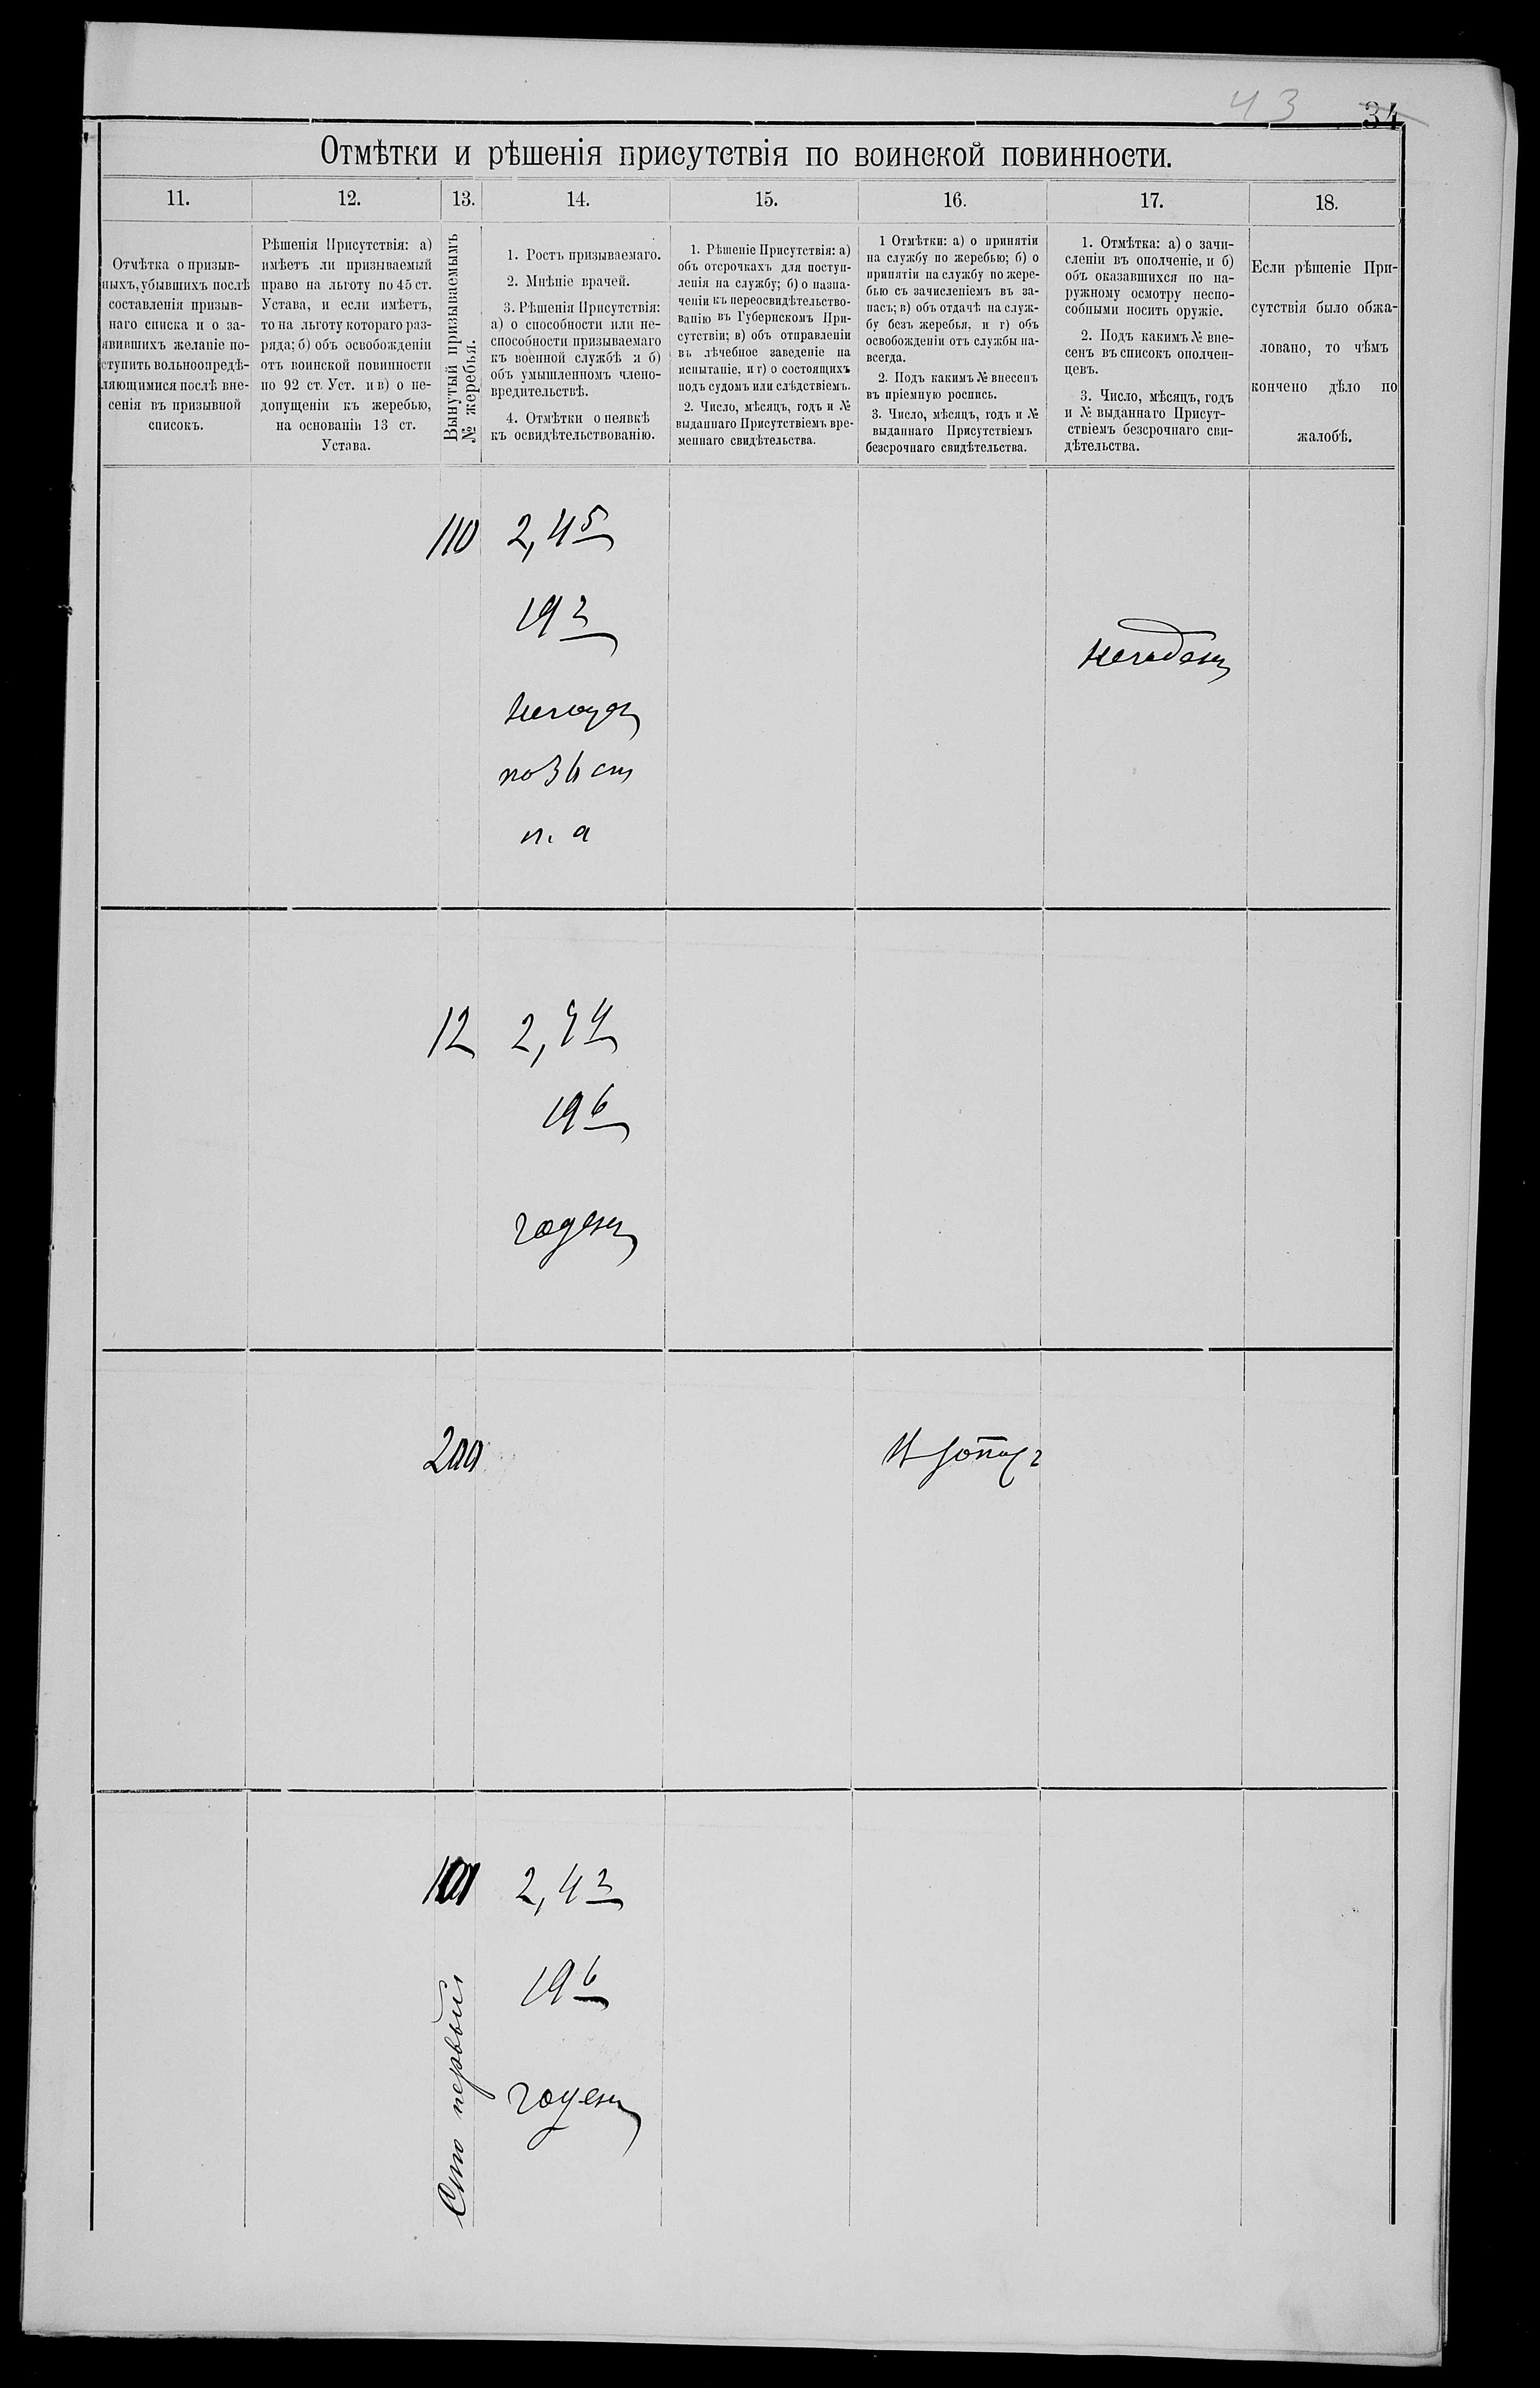 43 34
Отмѣтки и рѣшенія присутствія по воинской повинности.
11. 12. 13. 14. 15. 16. 17. 18.
Отмѣтка о призыв-
ныхъ, убывшихъ послѣ
составленія призыв-
наго списка и о за-
явившихъ желаніе по-
ступить вольноопредѣ-
ляющимися послѣ вне-
сенія въ призывной
списокъ.
Рѣшенія Присутствія: а)
имѣетъ ли призываемый
право на льготу по 45 ст.
Устава, и если имѣетъ,
то на льготу котораго раз-
ряда; б) объ освобожденіи
отъ воинской повинности
по 92 ст. Уст. и в) о не-
допущеніи къ жеребью,
на основаніи 13 ст.
Устава.
Вынутый призываемымъ
№ жеребья.
1. Ростъ призываемаго.
2. Мнѣніе врачей.
3. Рѣшенія Присутствія:
а) о способности или не-
способности призываемаго
къ военной службѣ и б)
объ умышленномъ члено-
вредительствѣ.
4. Отмѣтки о неявкѣ
къ освидѣтельствованію.
1. Рѣшеніе Присутствія: а)
объ отсрочкахъ для поступ-
ленія на службу; б) о назна-
ченіи къ переосвидѣтельство-
ванію въ Губернскомъ При-
сутствіи; в) объ отправленіи
въ лѣчебное заведеніе на
испытаніе, и г) о состоящихъ
подъ судомъ или слѣдствіемъ.
2. Число, мѣсяцъ, годъ и №
выданнаго Присутствіемъ вре-
меннаго свидѣтельства.
1 Отмѣтки: а) о принятіи
на службу по жеребью; б) о
принятіи на службу по жере-
бью съ зачисленіемъ въ за-
пасъ; в) объ отдачѣ на служ-
бу безъ жеребья, и г) объ
освобожденіи отъ службы на-
всегда.
2. Подъ какимъ № внесенъ
въ пріемную роспись.
3. Число, мѣсяцъ, годъ и №
выданнаго Присутствіемъ
безсрочнаго свидѣтельства.
1. Отмѣтка: а) о зачи-
сленіи въ ополченіе, и б)
объ оказавшихся по на-
ружному осмотру неспо-
собными носить оружіе.
2. Подъ какимъ № вне-
сенъ въ списокъ ополчен-
цевъ.
3. Число, мѣсяцъ, годъ
и № выданнаго Присут-
ствіемъ безсрочнаго сви-
дѣтельства.
Если рѣшеніе При-
сутствія было обжа-
ловано, то чѣмъ
кончено дѣло по
жалобѣ.
110 2,4 5
19 2
негоден
негоден
по 36 ст
п. а
12 2,
19 6
годен
200
101 2,4 2
19 6
годен
Сто первый